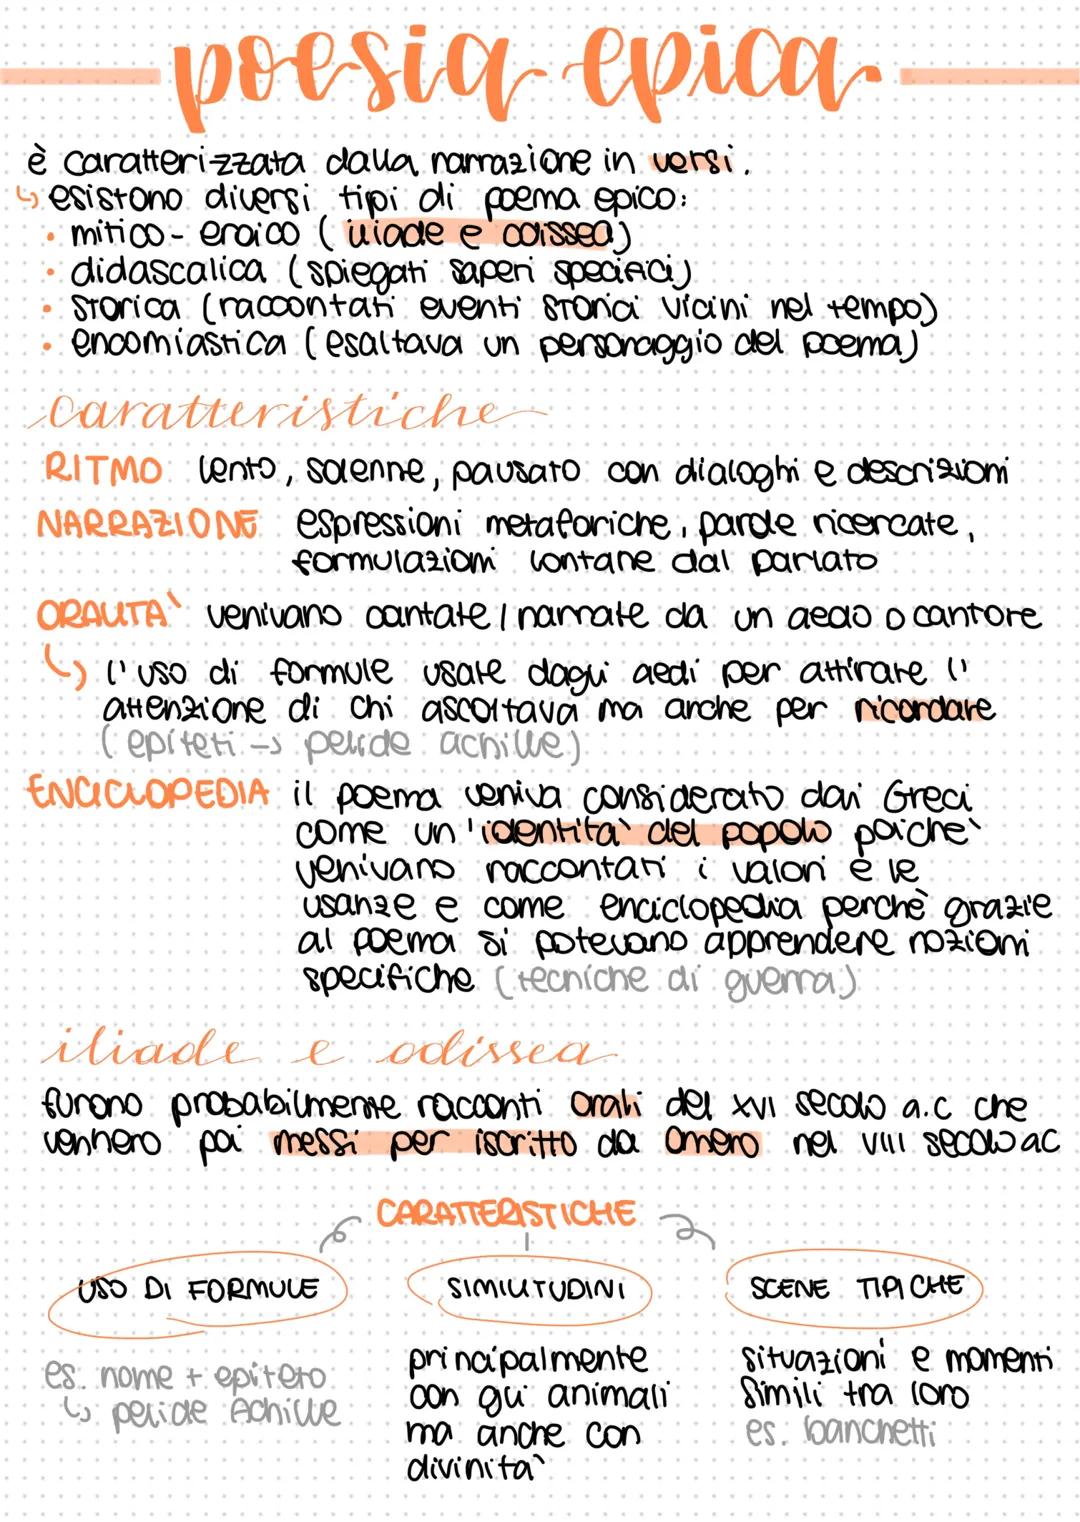 poesia epica
è caratterizzata dalla narrazione in versi.
↳ esistono diversi tipi di poema epico:
• mitico - eroico (iliade e odissea)
• didascalica (spiegati saperi specifici)
• storica (raccontati eventi storici vicini nel tempo)
• encomiastica (esaltava un personaggio del poema)
caratteristiche
RITMO lento, solenne, pausato con dialoghi e descrizioni
NARRAZIONE espressioni metaforiche, parole ricercate,
formulazioni lontane dal parlato
ORALITA' venivano cantate / narrate da un aedo o cantore
↳ l'uso di formule usate dagli aedi per attirare l'
attenzione di chi ascoltava ma anche per ricordare
(epiteti → pelide achille)
ENCICLOPEDIA il poema veniva considerato dai Greci
come un'identità del popolo poichè
venivano raccontati i valori e le
usanze e come enciclopedia perchè grazie
al poema si potevano apprendere nozioni
specifiche (tecniche di guerra)
iliade e odissea
furono probabilmente racconti orali del XVI secolo a.c che
vennero poi messi per iscritto da Omero nel VIII secolo ac
CARATTERISTICHE
USO DI FORMULE SIMILITUDINI SCENE TIPICHE
es. nome + epiteto
↳ pelide Achille
principalmente
con gli animali
ma anche con
divinità
situazioni e momenti
simili tra loro
es. banchetti